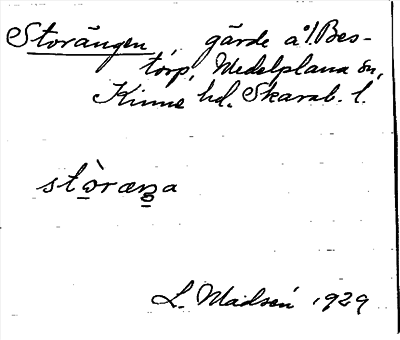 Storängen, gärde å Bes-
torp, Medelplana sn,
Kinne hd. Skarab. l.
stòræŋa
L. Madsén 1929